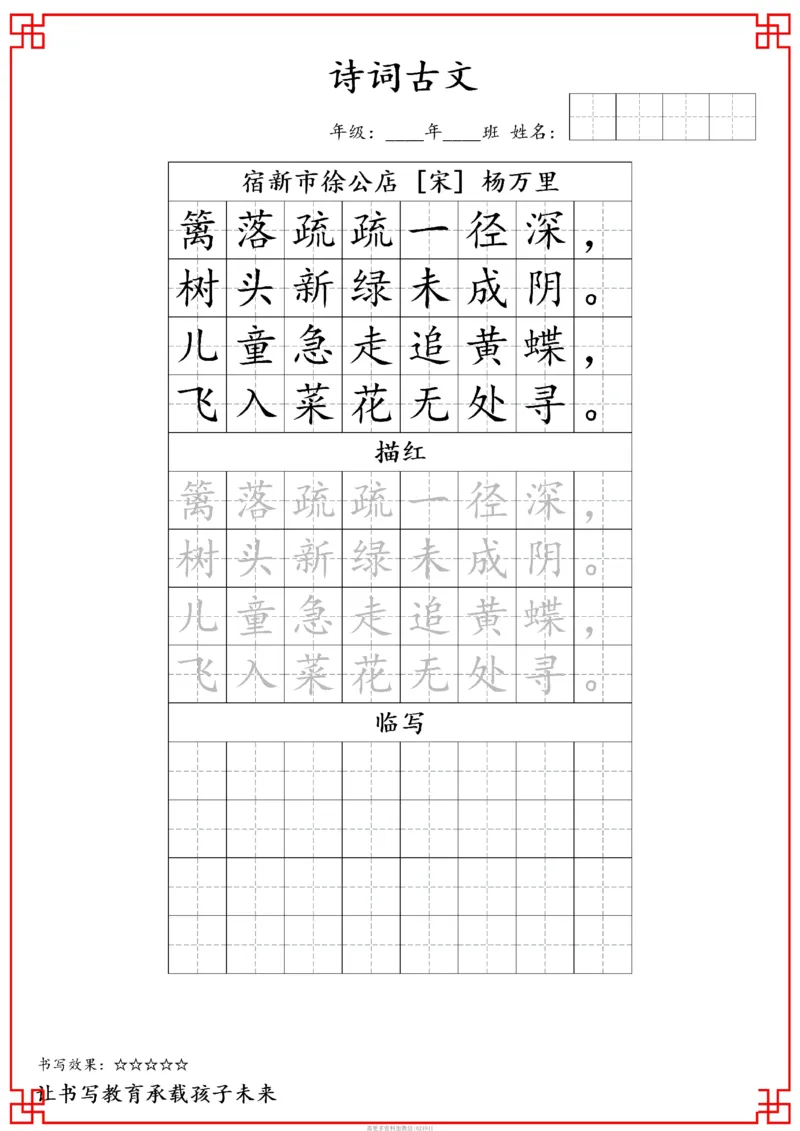 诗词古文
年级：____年____班 姓名：
宿新市徐公店 [宋] 杨万里
篱落疏疏一径深，
树头新绿未成阴。
儿童急走追黄蝶，
飞入菜花无处寻。
描红
篱落疏疏一径深，
树头新绿未成阴。
儿童急走追黄蝶，
飞入菜花无处寻。
临写
书写效果：☆☆☆☆☆
让书写教育承载孩子未来